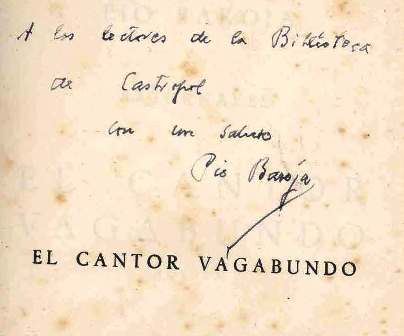 A los lectores de la Biblioteca
de Castropol
con un saludo
Pio Baroja
EL CANTOR VAGABUNDO